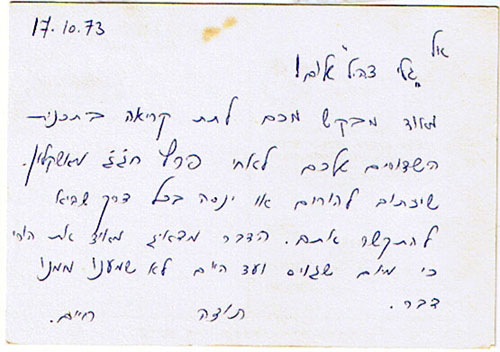 17.10.73
אל
"גלי צה"ל" שלום!
מאוד מבקש מכם לתת קריאה בתכנית
השדורים שלכם לאחי פרץ חג'ג' מאשקלון.
שיכתוב להורים או ינסה בכל דרך שהיא
להתקשר אתם. הדבר מדאיג מאוד את הורי
כי מיום שגויס ועד היום לא שמענו ממנו
דבר.
תודה חיים.